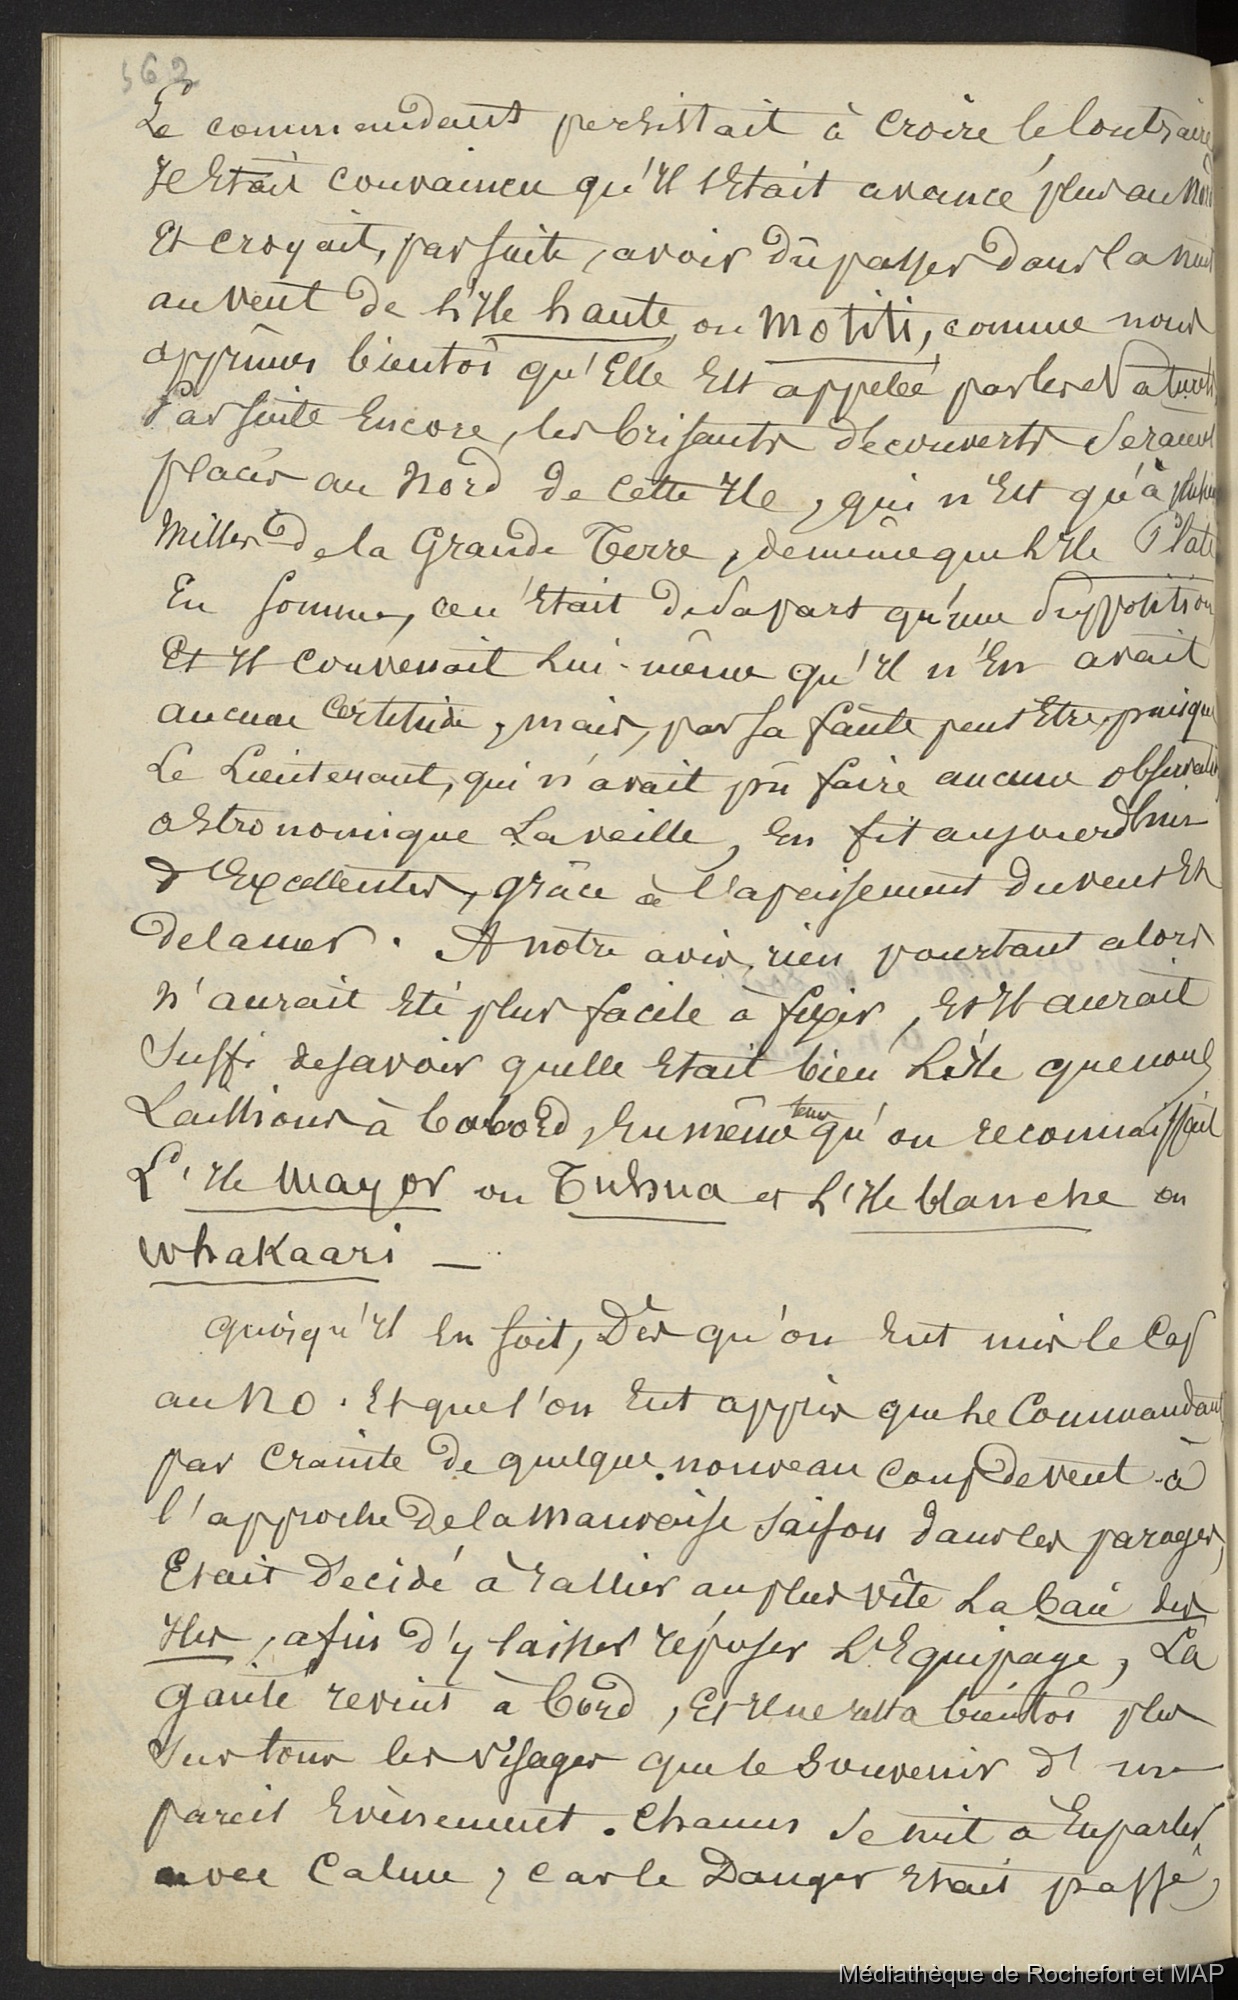 562
Le commandant persistait à croire le contraire
Il Etait convaincu qu'Il s'Etait avancé plus au Nord
Et croyait, par suite, avoir dû passer dans la nuit
au vent de l'Ile haute, ou Motiti, comme nous
apprîmes bientôt qu'Elle Est appelée par les Naturels.
Par suite Encore, les brisants découverts seraient
placés au Nord de cette Ile, qui n'Est qu'à
Milles de la Grande Terre, de même que l'Ile Plate
En somme, ce n'Etait de sa part qu'une supposition
Et Il convenait lui-même qu'Il n'En avait
aucune Certitude, mais, par sa faute peut Etre, puisque
Le Lieutenant, qui n'avait pû faire aucune observation
astronomique La veille, En fit aujourd'hui
d'Excellentes, grâce à l'apaisement du vent Et
de la mer. A notre avis, rien pourtant alors
n'aurait Eté plus facile à fixer, Et Il aurait
Suffi de savoir quelle Etait bien L'Ile que nous
Laissions à babord, En même tems qu'on reconnaissait
L'Ile Mayor ou Tuhua et L'Ile blanche ou
Whakaari —
Quoiqu'Il En soit, Dès qu'on Eut mis le Cap
au NO. Et que l'on Eut appris que Le Commandant
par Crainte de quelque nouveau coup de vent à
l'approche de la Mauvaise Saison dans les parages,
Etait Décidé à rallier au plus vîte La baie des
Iles, afin d'y laisser réposer L'Equipage, La
gaité revint à bord, Et Il ne resta bientôt plus
Sur tous les visages que le Souvenir d'un
pareil Evènement. Chacun Se mit à En parler
avec Calme, car le Danger Etait passé,
Médiathèque de Rochefort et MAP